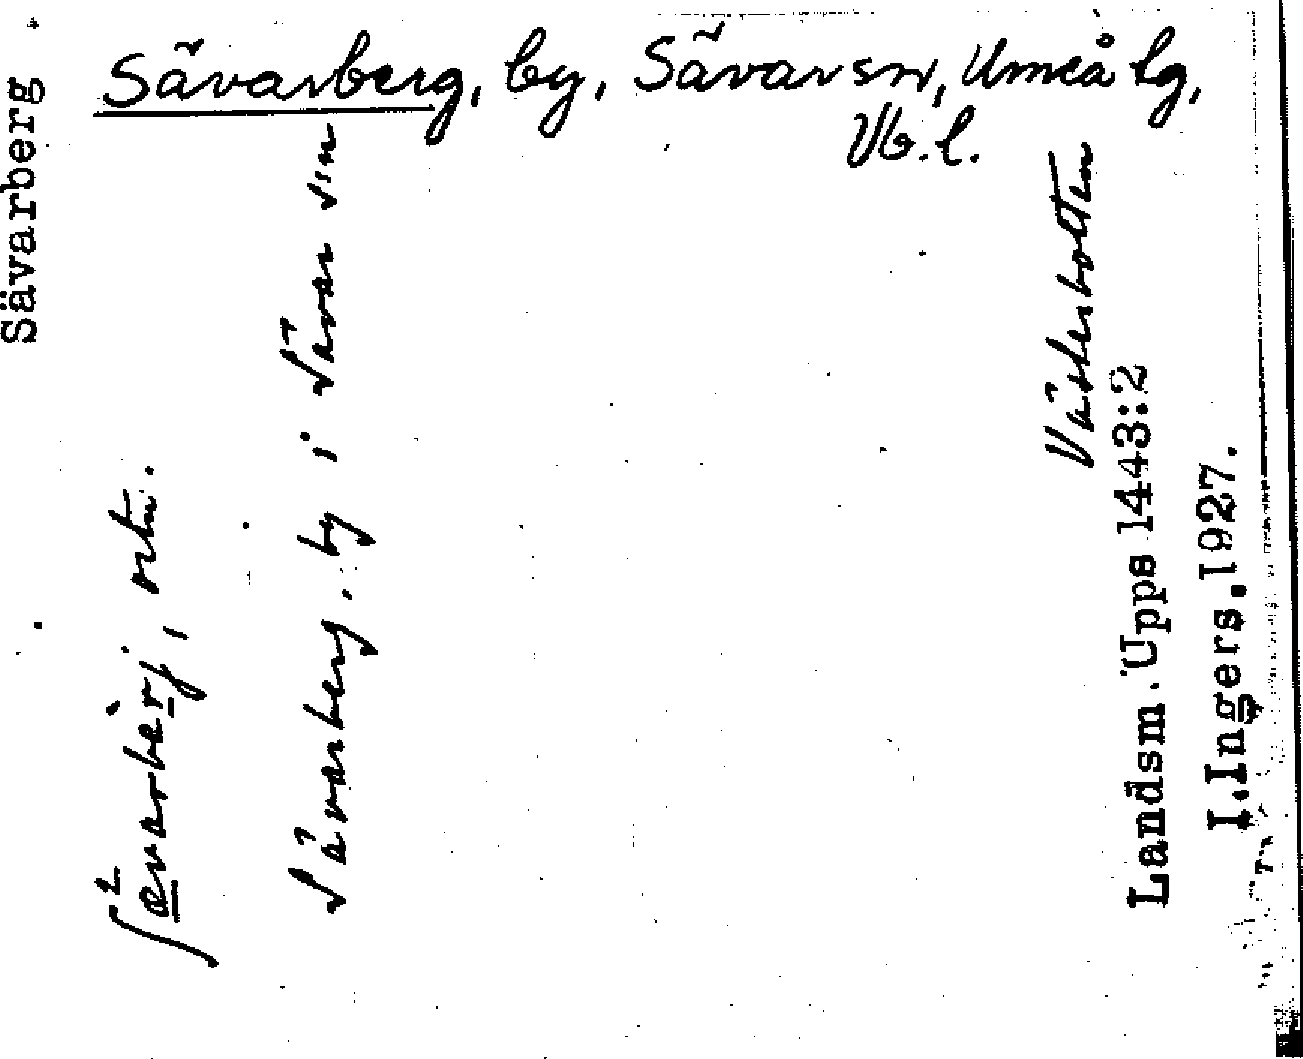 Sävarberg, by, Sävar sn, Umeå lg,
Vb. l.
Sävarberg
ʃ²ævarbærj, rtn.
Sävarberg. by i Sävar s:n
Västerbotten
Landsm. Upps 1443:2
I. Ingers, 1927.